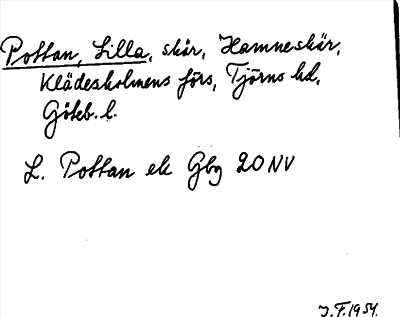 Pottan, Lilla, skär, Hamneskär,
Klädesholmens förs, Tjörns hd,
Göteb. l.
L. Pottan ek Gbg 20 NV
J.F. 1954.